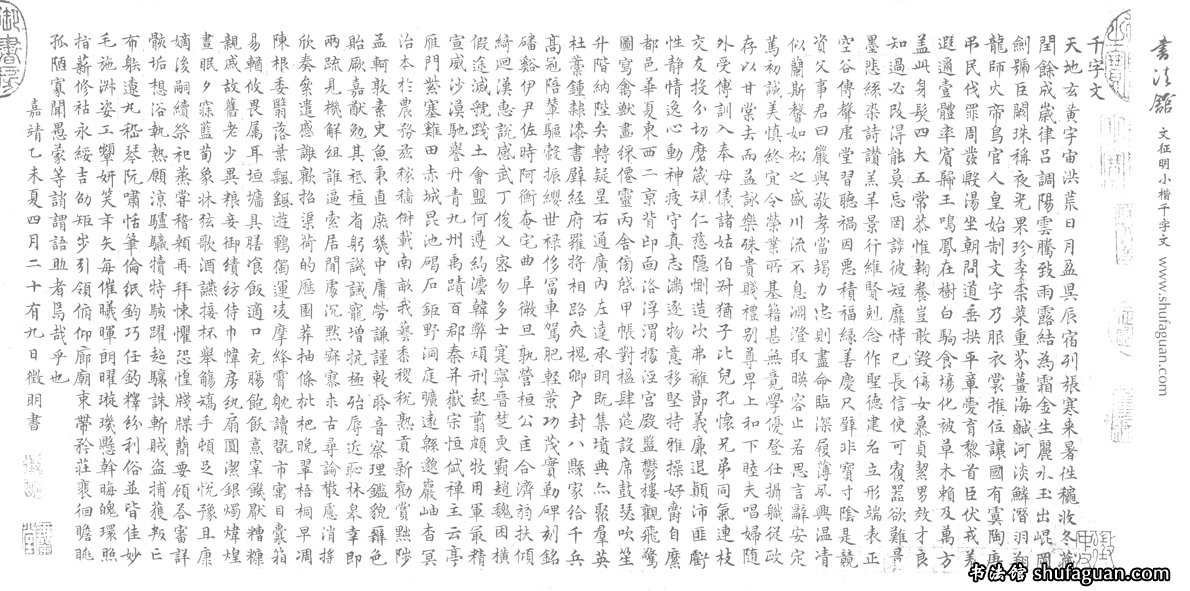 書法館 文征明小楷千字文 www.shufaguan.com
千字文
天地玄黃宇宙洪荒日月盈昃辰宿列張寒來暑往穐收冬藏
閏餘成歲律呂調陽雲騰致雨露結為霜金生麗水玉出崐岡
劍號巨闕珠稱夜光果珍李柰菜重芥薑海鹹河淡鱗潛羽翔
龍師火帝鳥官人皇始制文字乃服衣裳推位讓國有虞陶唐
弔民伐罪周發殷湯坐朝問道垂拱平章愛育黎首臣伏戎羌
遐邇壹體率賓歸王鳴鳳在樹白駒食場化被草木賴及萬方
盖此身髮四大五常恭惟鞠養豈敢毀傷女慕貞絜男效才良
知過必改得能莫忘罔談彼短靡恃己長信使可覆器欲難量
墨悲絲染詩讚羔羊景行維賢剋念作聖德建名立形端表正
空谷傳聲虛堂習聽禍因惡積福緣善慶尺璧非寶寸陰是競
資父事君曰嚴與敬孝當竭力忠則盡命臨深履薄夙興溫凊
似蘭斯馨如松之盛川流不息淵澄取暎容止若思言辭安定
篤初誠美慎終宜令榮業所基籍甚無竟學優登仕攝職從政
存以甘棠去而益詠樂殊貴賤禮別尊卑上和下睦夫唱婦隨
外受傅訓入奉母儀諸姑伯叔猶子比兒孔懷兄弟同氣連枝
交友投分切磨箴規仁慈隱惻造次弗離節義廉退顛沛匪虧
性靜情逸心動神疲守真志滿逐物意移堅持雅操好爵自縻
都邑華夏東西二京背邙面洛浮渭據涇宮殿盤鬱樓觀飛驚
圖寫禽獸畫綵僊靈丙舍傍啓甲帳對楹肆筵設席鼓瑟吹笙
升階納陛弁轉疑星右通廣內左達承明既集墳典亦聚群英
杜稾鍾隸漆書壁經府羅將相路夾槐卿户封八縣家給千兵
高冠陪輦驅轂振纓世祿侈富車駕肥輕策功茂實勒碑刻銘
磻谿伊尹佐時阿衡奄宅曲阜微旦孰營桓公匡合濟弱扶傾
綺迴漢惠說感武丁俊乂密勿多士寔寧晉楚更霸趙魏困橫
假途滅虢踐土會盟何遵約法韓弊煩刑起翦頗牧用軍最精
宣威沙漠馳譽丹青九州禹蹟百郡秦并嶽宗恒岱禪主云亭
雁門紫塞雞田赤城昆池碣石鉅野洞庭曠遠緜邈巖岫杳冥
治本於農務茲稼穡俶載南畝我藝黍稷稅熟貢新勸賞黜陟
孟軻敦素史魚秉直庶幾中庸勞謙謹敕聆音察理鑑貌辯色
貽厥嘉猷勉其祗植省躬譏誡寵增抗極殆辱近恥林皋幸即
兩疏見機解組誰逼索居閒處沉默寂寥求古尋論散慮消搖
欣奏累遣慼謝歡招渠荷的歷園莽抽條枇杷晚翠梧桐早凋
陳根委翳落葉飄颻遊鵾獨運凌摩絳霄耽讀翫市寓目囊箱
易輶攸畏屬耳垣墻具膳飡飯適口充腸飽飫烹宰饑厭糟糠
親戚故舊老少異粮妾御績紡侍巾帷房紈扇圓潔銀燭煒煌
晝眠夕寐藍筍象牀弦歌酒讌接杯舉觴矯手頓足悅豫且康
嫡後嗣續祭祀蒸嘗稽顙再拜悚懼恐惶牋牒簡要顧荅審詳
骸垢想浴執熱願涼驢騾犢特駭躍超驤誅斬賊盜捕獲叛亡
布躲遼丸嵇琴阮嘯恬筆倫紙鈞巧任釣釋紛利俗並皆佳妙
毛施淑姿工顰妍笑年矢每催曦暉朗曜璇璣懸斡晦魄環照
指薪修祜永綏吉劭矩步引領俯仰廊廟束帶矜莊裴徊瞻眺
孤陋寡聞愚蒙等誚謂語助者焉哉乎也
嘉靖乙未夏四月二十有九日徵明書
书法馆 shufaguan.com